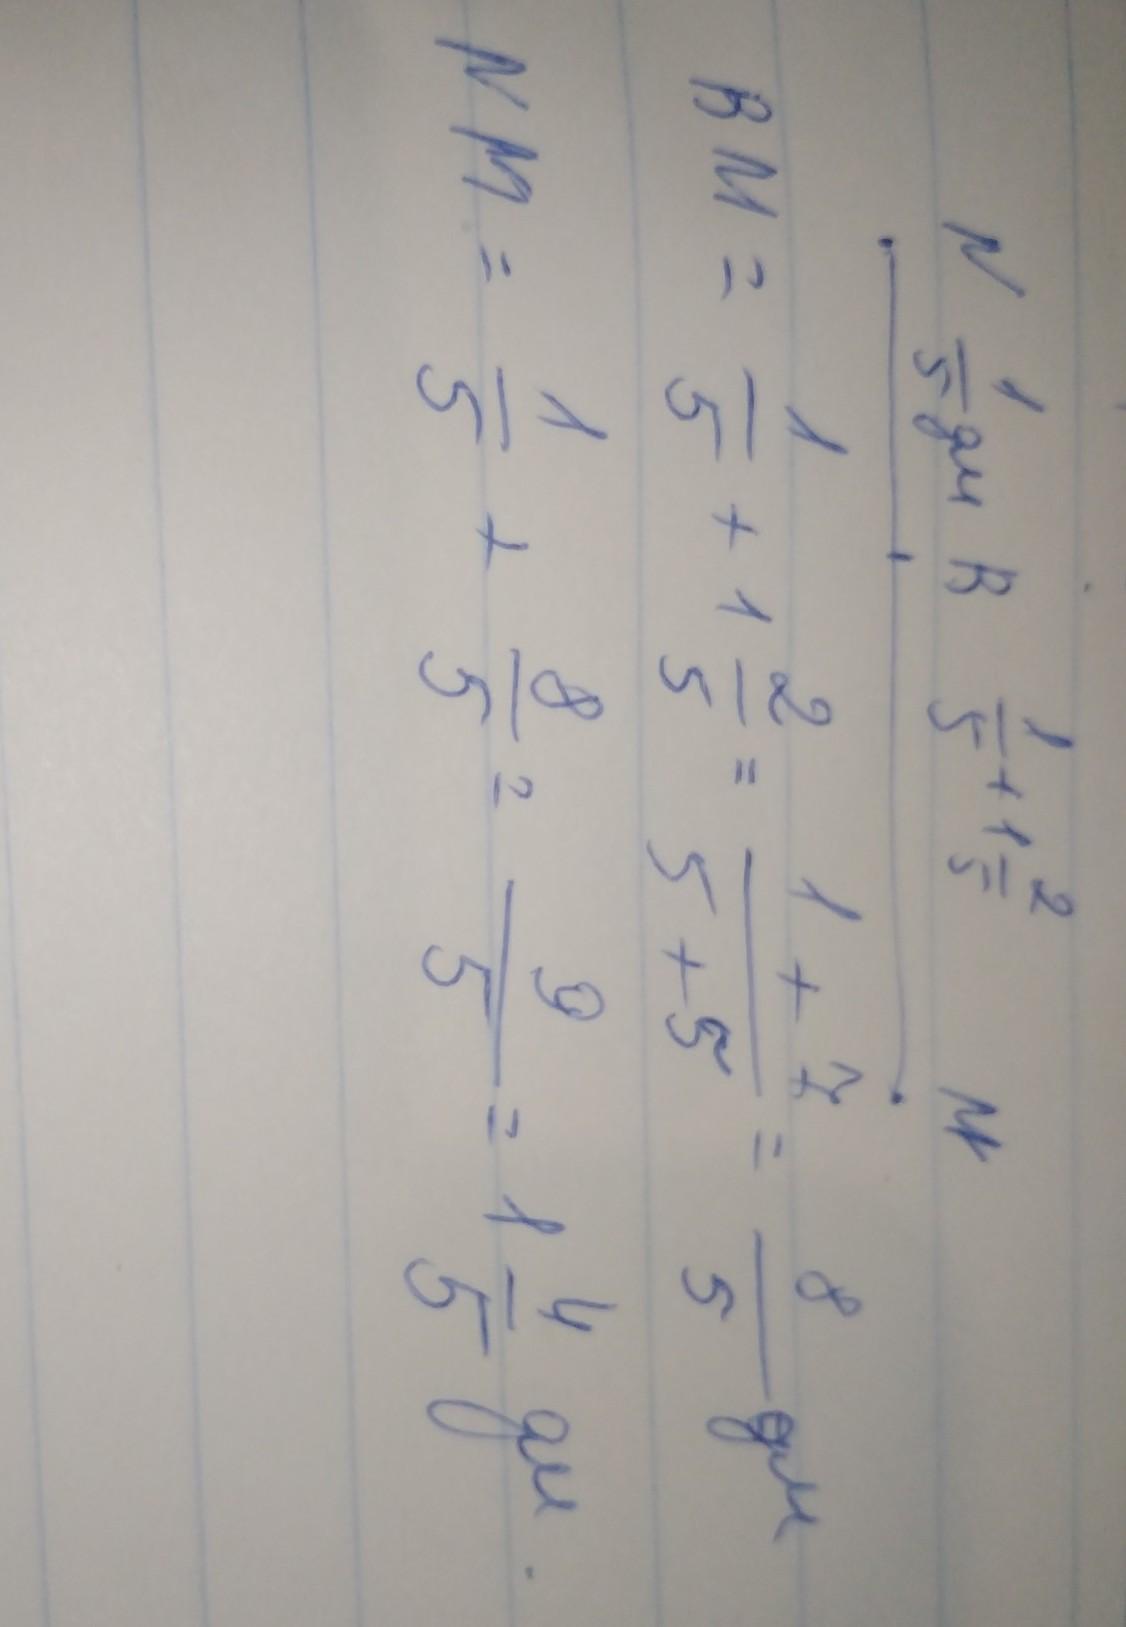 N 1/5 дм B 1/5 + 1 2/5 M
BM = 1/5 + 1 2/5 = (1 + 7)/(5 + 5) = 8/5 дм
NM = 1/5 + 8/5 = 9/5 = 1 4/5 дм.